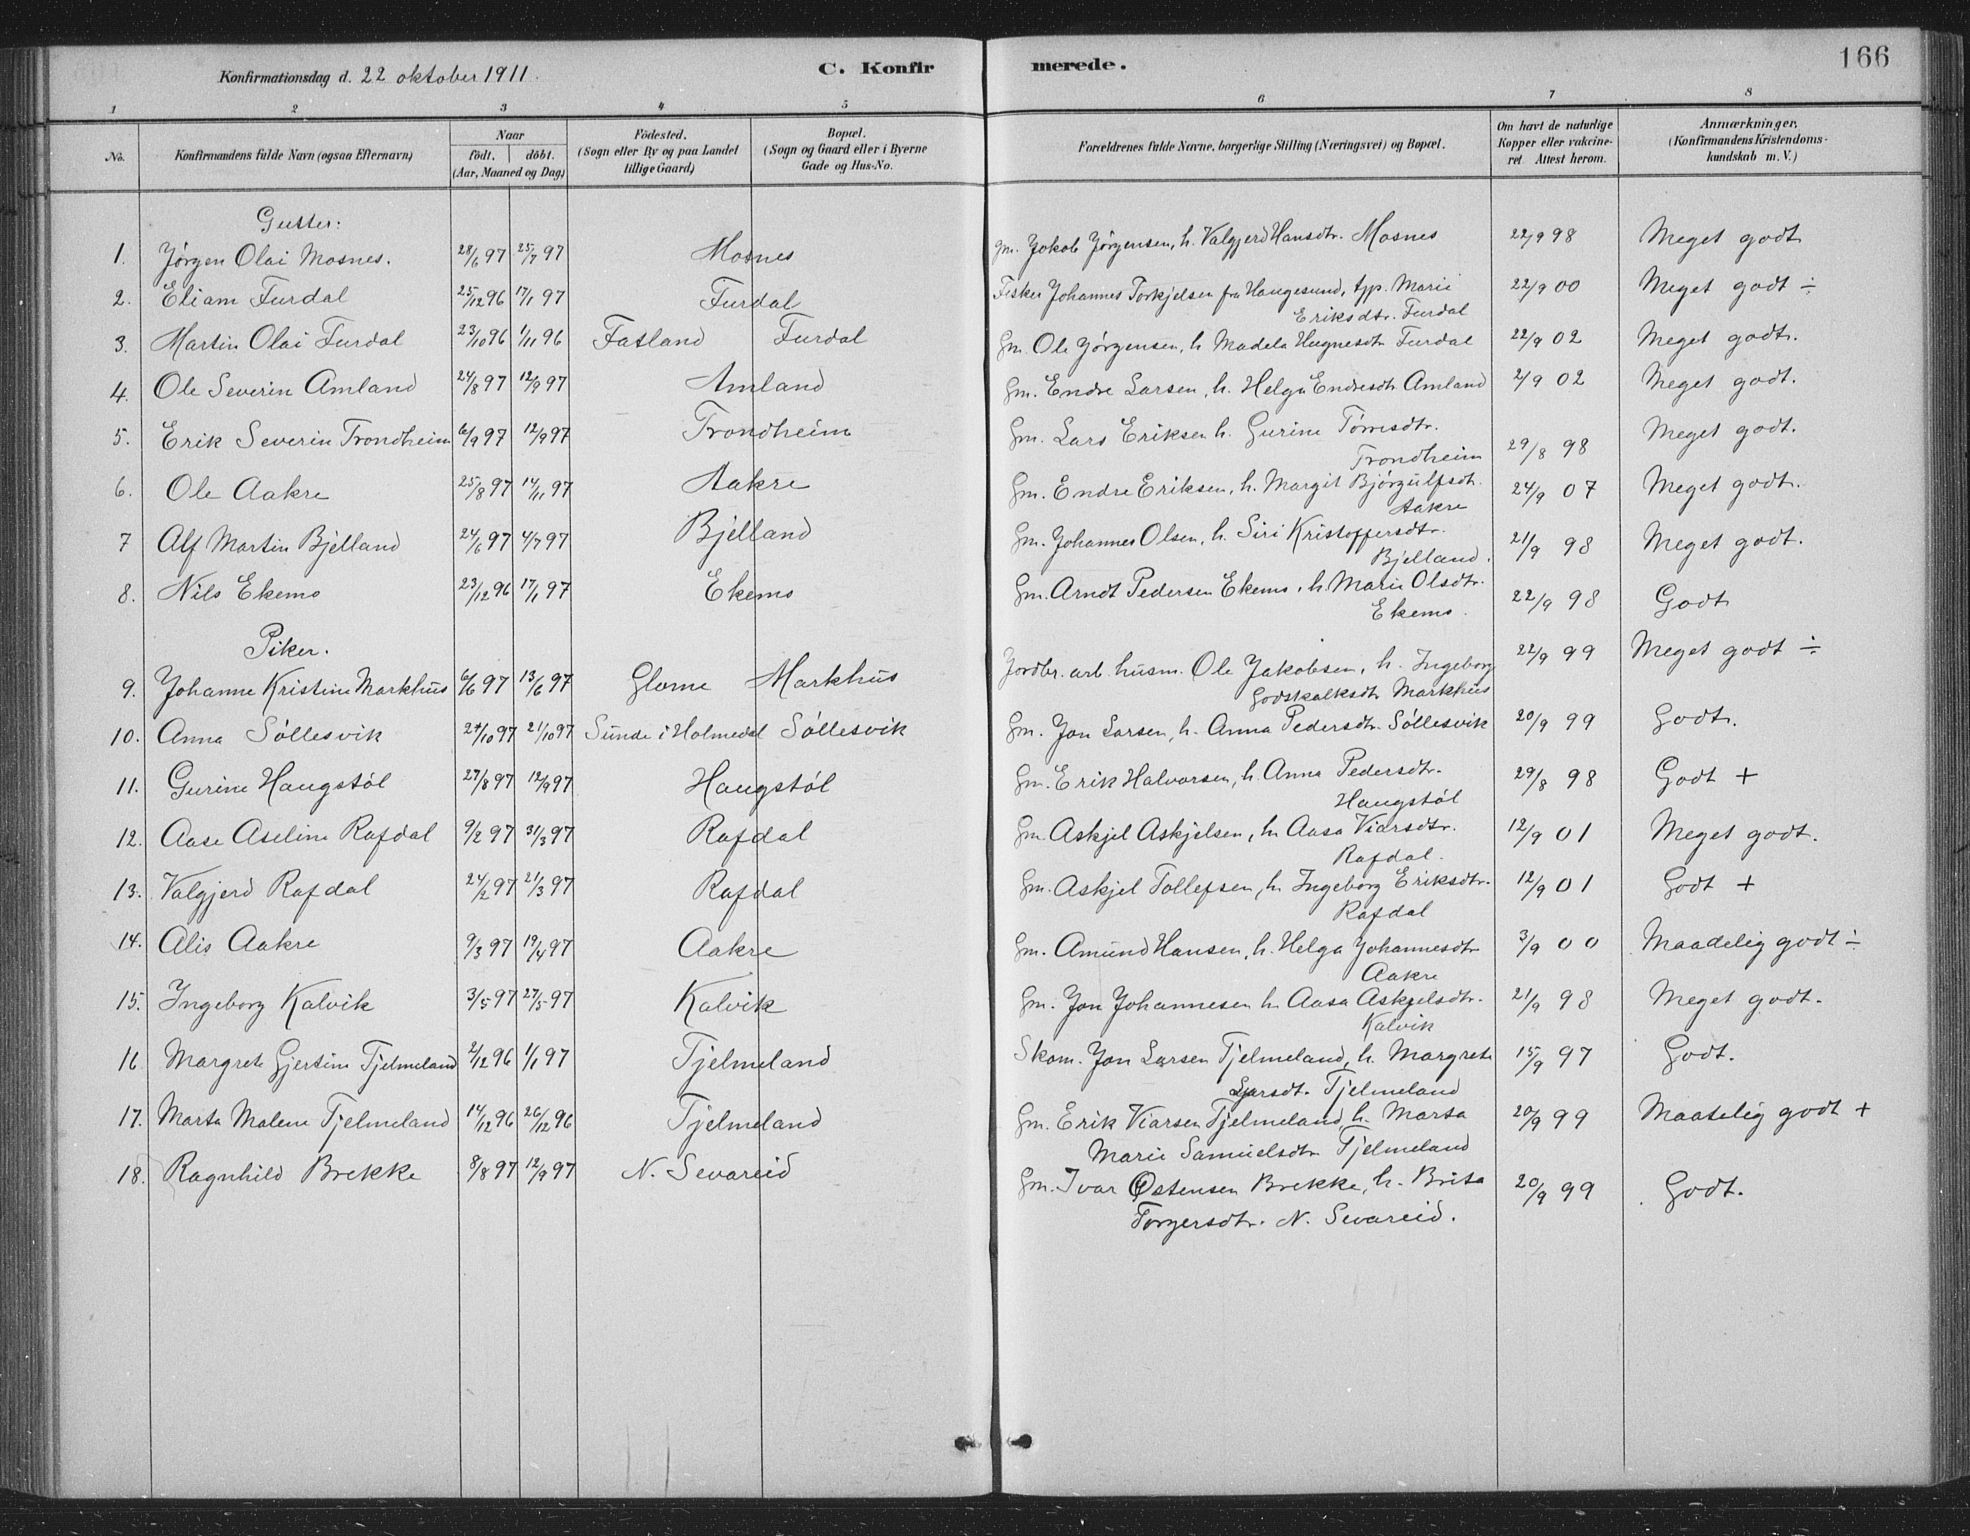 166
Konfirmationsdag d. 22 oktober 1911. C. Konfirmerede.
1 2 3 4 5 6 7 8
No. Konfirmandens fulde Navn (ogsaa Efternavn) Naar födt. döbt. (Aar, Maaned og Dag) Födested. (Sogn eller By og paa Landet tillige Gaard) Bopæl. (Sogn og Gaard eller i Byerne Gade og Hus-No. Forældrenes fulde Navne, borgerlige Stilling (Næringsvei) og Bopæl. Om havt de naturlige Kopper eller vakcineret Attest herom. Anmærkninger. (Konfirmandens Kristendomskundskab m. V.)
Gutter:
1. Jørgen Olai Mosnes. 28/6 97 25/7 97 Mosnes Gm. Jakob Jørgensen, h. Valgjerd Hansdtr. Mosnes 22/9 98 Meget godt
2. Eliam Furdal 25/12 96 17/1 97 Furdal Fisker Johannes Torkjelsen fra Haugesund, typ. Marie Eriksdtr. Furdal 22/9 00 Meget godt ÷
3. Martin Olai Furdal 23/10 96 1/11 96 Fatland Furdal Gm. Ole Jørgensen, h. Madela Hugnesdtr Furdal 22/9 02 Meget godt.
4. Ole Severin Amland 24/8 97 12/9 97 Amland Gm. Endre Larsen, h. Helga Endresdtr Amland 2/9 02 Meget godt.
5. Erik Severin Trondheim 6/9 97 12/9 97 Trondheim Gm. Lars Eriksen h. Gurine Tørresdtr. Trondheim 29/8 98 Meget godt.
6. Ole Aakre 25/8 97 14/11 97 Aakre Gm. Endre Eriksen, h. Margit Bjørgulfsdt. Aakre 24/9 07 Meget godt.
7 Alf Martin Bjelland 24/6 97 4/7 97 Bjelland Gm. Johannes Olsen, h. Siri Kristoffersdtr. Bjelland. 21/9 98 Meget godt.
8. Nils Ekemo 23/12 96 17/1 97 Ekemo Gm. Arndt Pedersen Ekemo, h. Marie Olsdtr. Ekemo. 22/9 98 Godt
Piker.
9. Johanne Kristine Markhus 6/6 97 13/6 97 Glome Markhus Jordbr. arb. husm. Ole Jakobsen, h. Ingeborg Godskalksdtr Markhus 22/9 99 Meget godt ÷
10. Anna Søllesvik 24/10 97 21/10 97 Sunde i Holmedal Søllesvik Gm. Jon Larsen, h. Anna Pedersdtr. Søllesvik 20/9 99 Godt.
11. Gurine Haugstøl 27/8 97 12/9 97 Haugstøl Gm. Erik Halvorsen, h. Anna Pedersdtr. Haugstøl 29/8 98 Godt +
12. Aase Aseline Rafdal 9/2 97 31/3 97 Rafdal Gm. Askjel Askjelsen, h. Aasa Viarsdtr. Rafdal. 12/9 01 Meget godt.
13. Valgjerd Rafdal 24/2 97 21/3 97 Rafdal Gm. Askjel Tollefsen, h. Ingeborg Eriksdtr. Rafdal 12/9 01 Godt +
14. Alis Aakre 9/3 97 19/4 97 Aakre Gm. Amund Hansen, h. Helga Johannesdtr Aakre 3/9 00 Maadelig godt ÷
15. Ingeborg Kalvik 3/5 97 27/5 97 Kalvik Gm. Jon Johannesen h. Aasa Askjelsdtr. Kalvik 21/9 98 Meget godt.
16 Margrete Gjertine Tjelmeland 2/12 96 1/1 97 Tjelmeland Skom. Jon Larsen Tjelmeland, h. Margrete Larsdt. Tjelmeland 15/9 97 Godt.
17. Marta Malene Tjelmeland 14/12 96 26/12 96 Tjelmeland Gm. Erik Viarsen Tjelmeland, h. Marta Marie Samuelsdtr Tjelmeland 20/9 99 Maatelig godt +
18. Ragnhild Brekke 8/8 97 12/9 97 N. Sevareid Gm. Ivar Østensen Brekke, h. Brita Torgersdtr. N. Sevareid. 20/9 99 Godt.